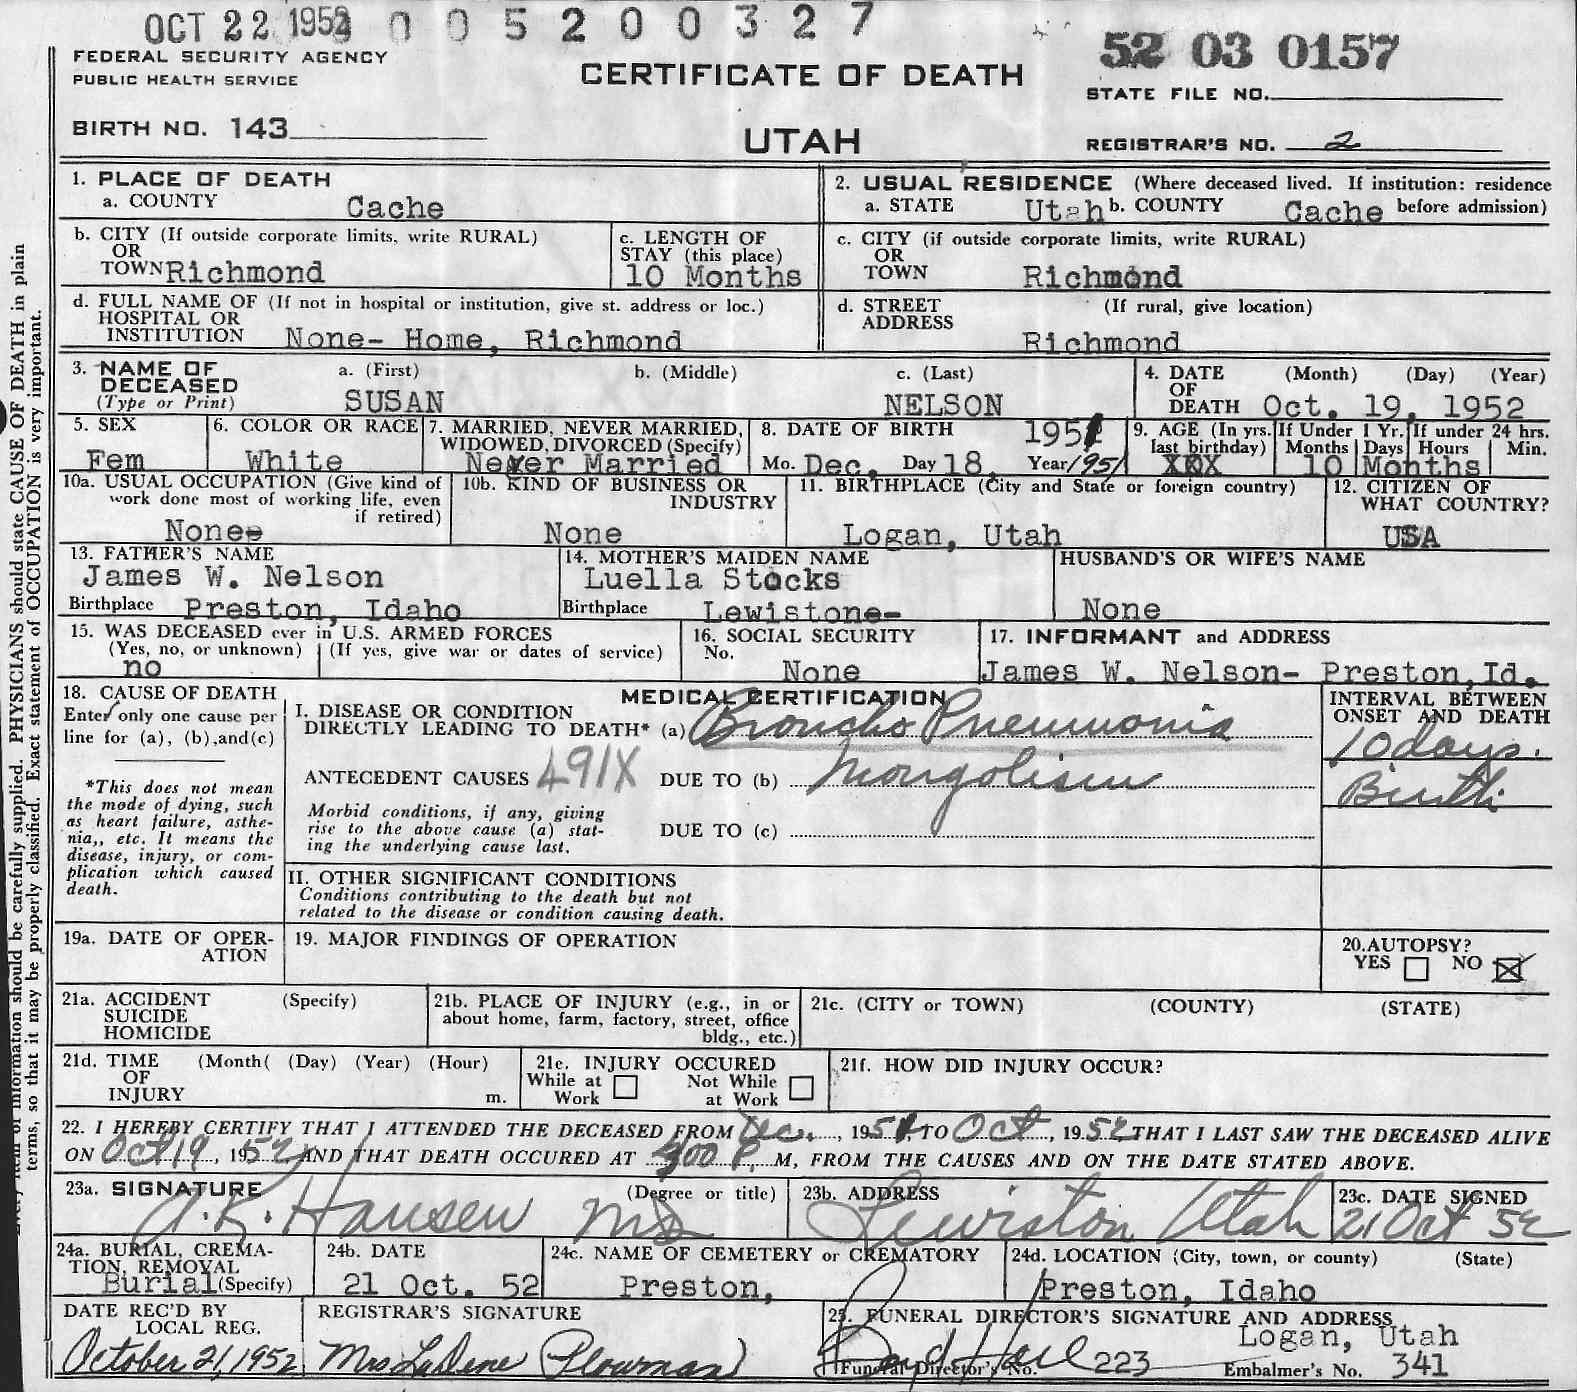 OCT 22 1952 0 0 5 2 0 0 3 2 7
52 03 0157
FEDERAL SECURITY AGENCY
PUBLIC HEALTH SERVICE
CERTIFICATE OF DEATH
STATE FILE NO.
BIRTH NO. 143
UTAH
REGISTRAR'S NO. 2
1. PLACE OF DEATH
a. COUNTY Cache
2. USUAL RESIDENCE (Where deceased lived. If institution: residence
a. STATE Utah b. COUNTY Cache before admission)
b. CITY (If outside corporate limits, write RURAL)
OR
TOWN Richmond
c. LENGTH OF
STAY (this place)
10 Months
c. CITY (if outside corporate limits, write RURAL)
OR
TOWN Richmond
d. FULL NAME OF (If not in hospital or institution, give st. address or loc.)
HOSPITAL OR
INSTITUTION None- Home, Richmond
d. STREET (If rural, give location)
ADDRESS
Richmond
3. NAME OF
DECEASED
(Type or Print)
a. (First)
SUSAN
b. (Middle)
c. (Last)
NELSON
4. DATE (Month) (Day) (Year)
OF
DEATH Oct. 19, 1952
5. SEX
Fem
6. COLOR OR RACE
White
7. MARRIED, NEVER MARRIED,
WIDOWED, DIVORCED (Specify)
Never Married
8. DATE OF BIRTH 1951
Mo. Dec. Day 18, Year 1951
9. AGE (In yrs.
last birthday)
XXX
If Under 1 Yr.
Months Days
If under 24 hrs.
Hours Min.
10 Months
10a. USUAL OCCUPATION (Give kind of
work done most of working life, even
if retired)
Nonee
10b. KIND OF BUSINESS OR
INDUSTRY
None
11. BIRTHPLACE (City and State or foreign country)
Logan, Utah
12. CITIZEN OF
WHAT COUNTRY?
USA
13. FATHER'S NAME
James W. Nelson
Birthplace Preston, Idaho
14. MOTHER'S MAIDEN NAME
Luella Stocks
Birthplace Lewistone-
HUSBAND'S OR WIFE'S NAME
None
15. WAS DECEASED ever in U.S. ARMED FORCES
(Yes, no, or unknown) (If yes, give war or dates of service)
no
16. SOCIAL SECURITY
No.
None
17. INFORMANT and ADDRESS
James W. Nelson- Preston, Id.
18. CAUSE OF DEATH
Enter only one cause per
line for (a), (b), and (c)
*This does not mean
the mode of dying, such
as heart failure, asthe-
nia,, etc. It means the
disease, injury, or com-
plication which caused
death.
MEDICAL CERTIFICATION
I. DISEASE OR CONDITION
DIRECTLY LEADING TO DEATH* (a) Broncho Pneumonia
ANTECEDENT CAUSES 491X DUE TO (b) Mongolism
Morbid conditions, if any, giving
rise to the above cause (a) stat-
ing the underlying cause last.
DUE TO (c)
INTERVAL BETWEEN
ONSET AND DEATH
10 days.
Birth
II. OTHER SIGNIFICANT CONDITIONS
Conditions contributing to the death but not
related to the disease or condition causing death.
19a. DATE OF OPER-
ATION
19. MAJOR FINDINGS OF OPERATION
20. AUTOPSY?
YES NO
21a. ACCIDENT (Specify)
SUICIDE
HOMICIDE
21b. PLACE OF INJURY (e.g., in or
about home, farm, factory, street, office
bldg., etc.)
21c. (CITY or TOWN) (COUNTY) (STATE)
21d. TIME (Month( (Day) (Year) (Hour)
OF
INJURY m.
21e. INJURY OCCURED
While at Work
Not While at Work
21f. HOW DID INJURY OCCUR?
22. I HEREBY CERTIFY THAT I ATTENDED THE DECEASED FROM Dec., 1951, TO Oct, 1952 THAT I LAST SAW THE DECEASED ALIVE
ON Oct 19, 1952 AND THAT DEATH OCCURED AT 00 P. M, FROM THE CAUSES AND ON THE DATE STATED ABOVE.
23a. SIGNATURE (Degree or title)
A.R. Hansen MD
23b. ADDRESS
Lewiston Utah
23c. DATE SIGNED
21 Oct 52
24a. BURIAL, CREMA-
TION, REMOVAL
Burial (Specify)
24b. DATE
21 Oct. 52
24c. NAME OF CEMETERY or CREMATORY
Preston,
24d. LOCATION (City, town, or county) (State)
Preston, Idaho
DATE REC'D BY
LOCAL REG.
October 21, 1952
REGISTRAR'S SIGNATURE
Mrs LaDene Plowman
25. FUNERAL DIRECTOR'S SIGNATURE AND ADDRESS
Logan, Utah
Funeral Director's No. 223
Embalmer's No. 341
information should be carefully supplied. PHYSICIANS should state CAUSE OF DEATH in plain
terms, so that it may be properly classified. Exact statement of OCCUPATION is very important.